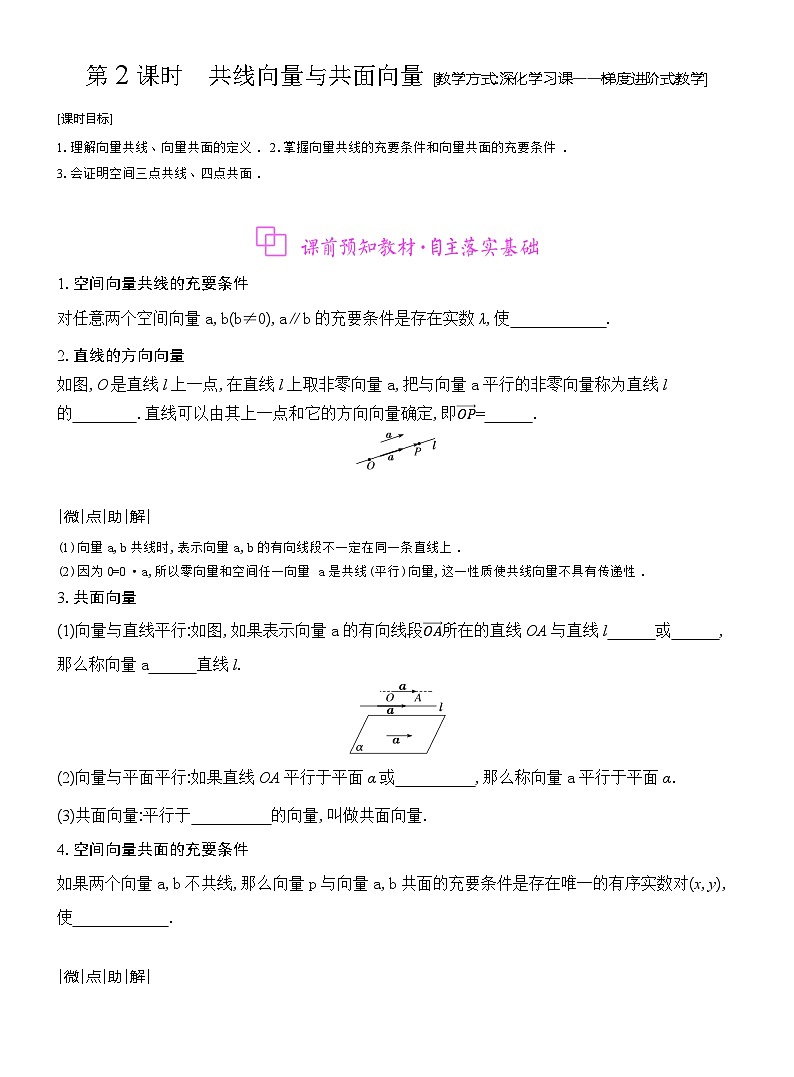 第2课时 共线向量与共面向量 [教学方式:深化学习课——梯度进阶式教学]
[课时目标]
1.理解向量共线、向量共面的定义. 2.掌握向量共线的充要条件和向量共面的充要条件.
3.会证明空间三点共线、四点共面.
课前预知教材·自主落实基础
1.空间向量共线的充要条件
对任意两个空间向量a,b(b≠0),a∥b的充要条件是存在实数λ,使____________.
2.直线的方向向量
如图,O是直线l上一点,在直线l上取非零向量a,把与向量a平行的非零向量称为直线l
的________.直线可以由其上一点和它的方向向量确定,即\overrightarrow{OP}=______.
a
O a P l
|微|点|助|解|
(1)向量a,b共线时,表示向量a,b的有向线段不一定在同一条直线上.
(2)因为0=0·a,所以零向量和空间任一向量a是共线(平行)向量,这一性质使共线向量不具有传递性.
3.共面向量
(1)向量与直线平行:如图,如果表示向量a的有向线段\overrightarrow{OA}所在的直线OA与直线l______或______,
那么称向量a______直线l.
a
O A
a l
α a
(2)向量与平面平行:如果直线OA平行于平面α或__________,那么称向量a平行于平面α.
(3)共面向量:平行于__________的向量,叫做共面向量.
4.空间向量共面的充要条件
如果两个向量a,b不共线,那么向量p与向量a,b共面的充要条件是存在唯一的有序实数对(x,y),
使____________.
|微|点|助|解|